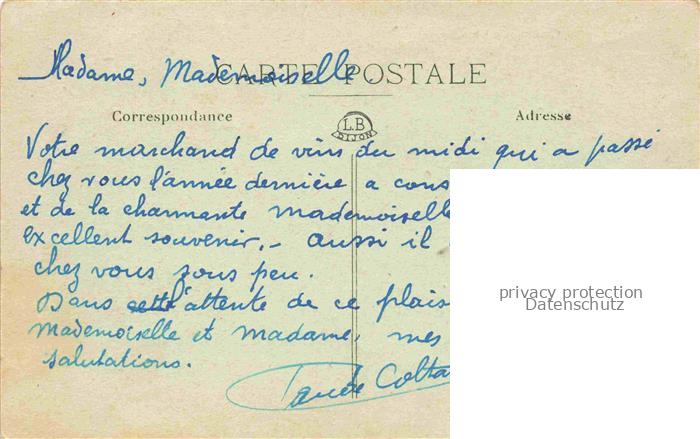 CARTE POSTALE
Madame, Mademoiselle.
Correspondance
L.B
DIJON
Adresse
Votre marchand de vins du midi qui a passé
chez vous l'année dernière a cons
et de la charmante mademoiselle
excellent souvenir.- aussi il
chez vous sous peu.
Dans cette l'attente de ce plais
mademoiselle et madame, mes
salutations.
privacy protection
Datenschutz